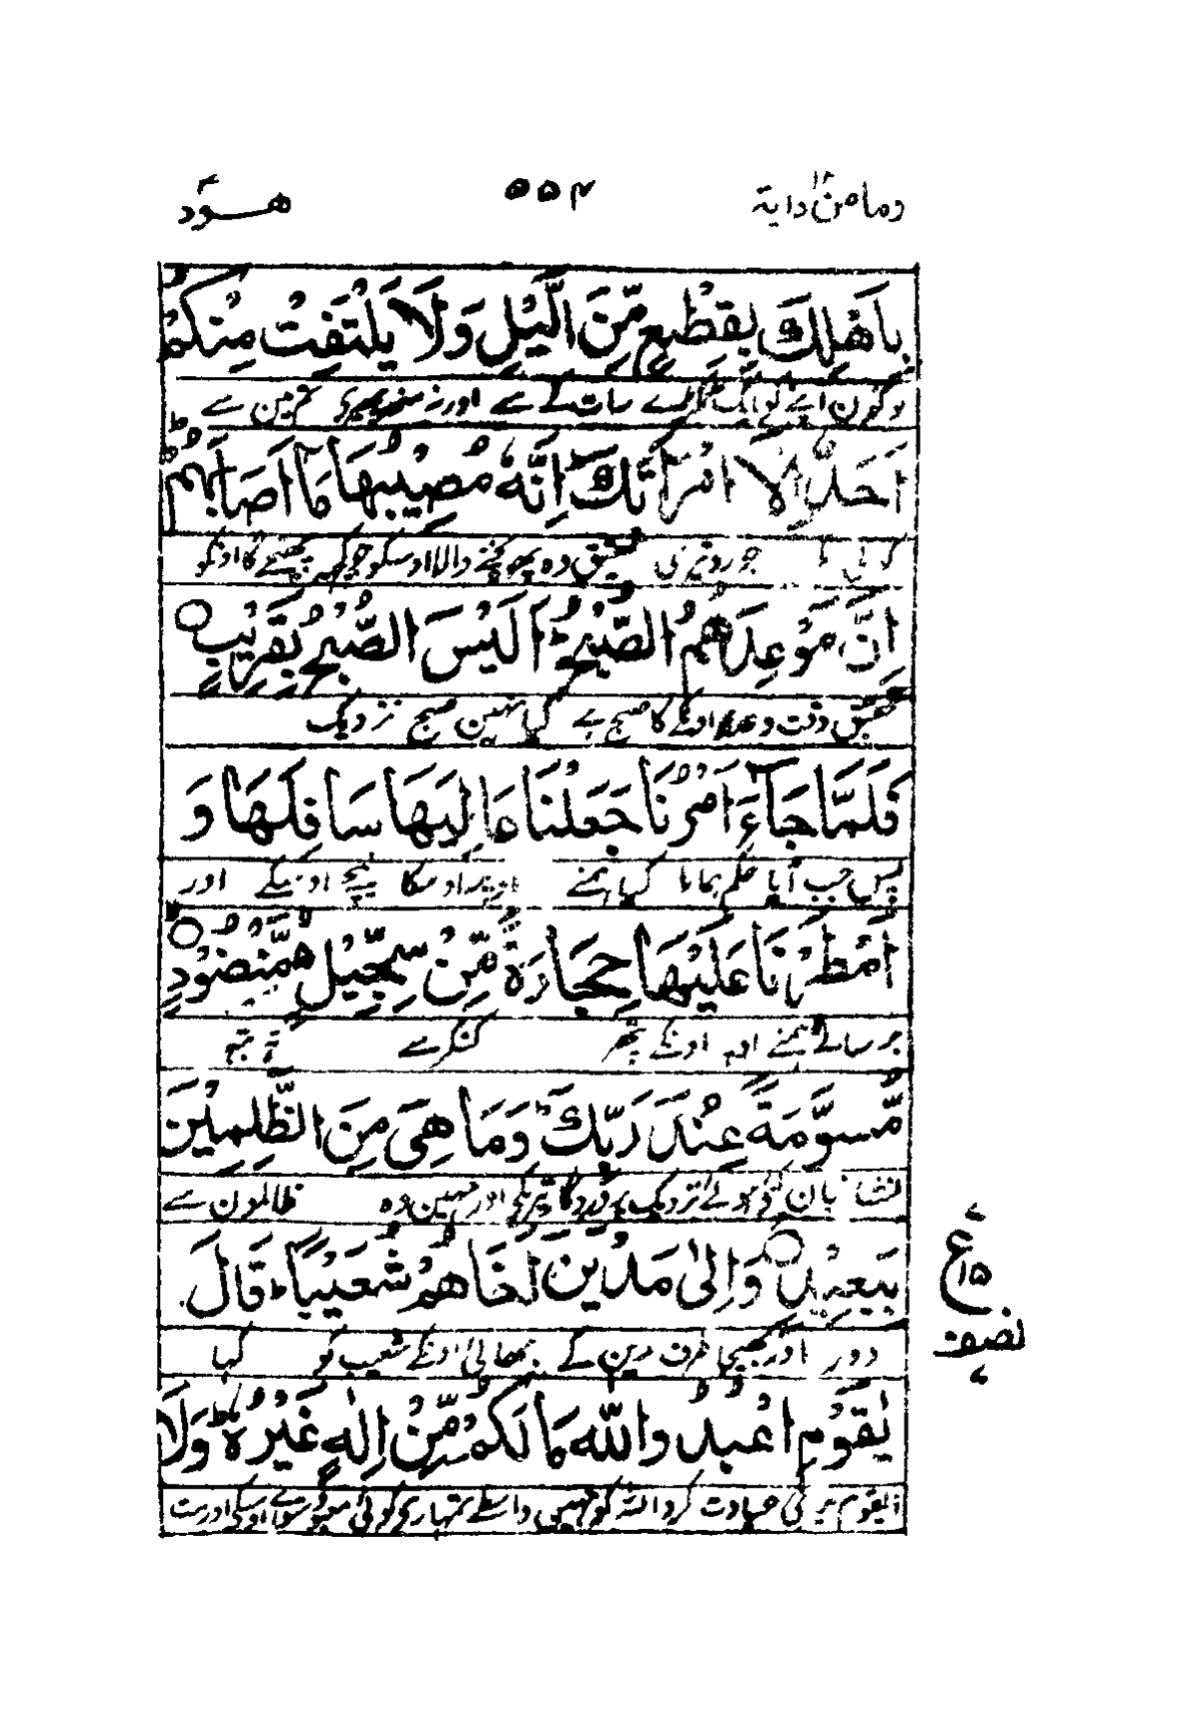 وما من دابة ١٢ ۵۵۴ هود
بِاَهْلِكَ بِقِطْعٍ مِّنَ الَّيْلِ وَلَا يَلْتَفِتْ مِنْكُمْ
لوگون اپنے کو ایک رات کے سے اور نہ تم مین سے
اَحَدٌ اِلَّا امْرَاَتَكَ اِنَّهٗ مُصِيْبُهَا مَا اَصَابَهُمْ
کوئی جورو تیری تحقیق وہ پہونچنے والا اوسکو جو کچھ پہنچے گا اونکو
اِنَّ مَوْعِدَهُمُ الصُّبْحُ اَلَيْسَ الصُّبْحُ بِقَرِيْبٍ
تحقیق وقت وعدہ اونکے کا صبح ہے کیا نہین صبح نزدیک
فَلَمَّا جَآءَ اَمْرُنَا جَعَلْنَا عَالِيَهَا سَافِلَهَا وَ
پس جب آیا حکم ہمارا کیا ہمنے اوپر اوسکا نیچے اونکے اور
اَمْطَرْنَا عَلَيْهَا حِجَارَةً مِّنْ سِجِّيْلٍ مَّنْضُوْدٍ
برسائے ہمنے اوپر اونکے پتھر کنکر سے تہ بتہ
مُّسَوَّمَةً عِنْدَ رَبِّكَ وَمَا هِىَ مِنَ الظّٰلِمِيْنَ
نشان کئے ہوئے نزدیک پروردگار تیرے کے اور نہین وہ ظالمون سے
بِبَعِيْدٍ وَاِلٰى مَدْيَنَ اَخَاهُمْ شُعَيْبًا قَالَ
ع ١۵
دور اور بھیجا طرف مدین کے بھائی اونکے شعیب کو کہا
نصف
يٰقَوْمِ اعْبُدُوا اللّٰهَ مَا لَكُمْ مِّنْ اِلٰهٍ غَيْرُهٗ وَلَا
اے قوم میری عبادت کرو اللہ کو نہین واسطے تمہارے کوئی معبود سوائے اوسکے اور مت